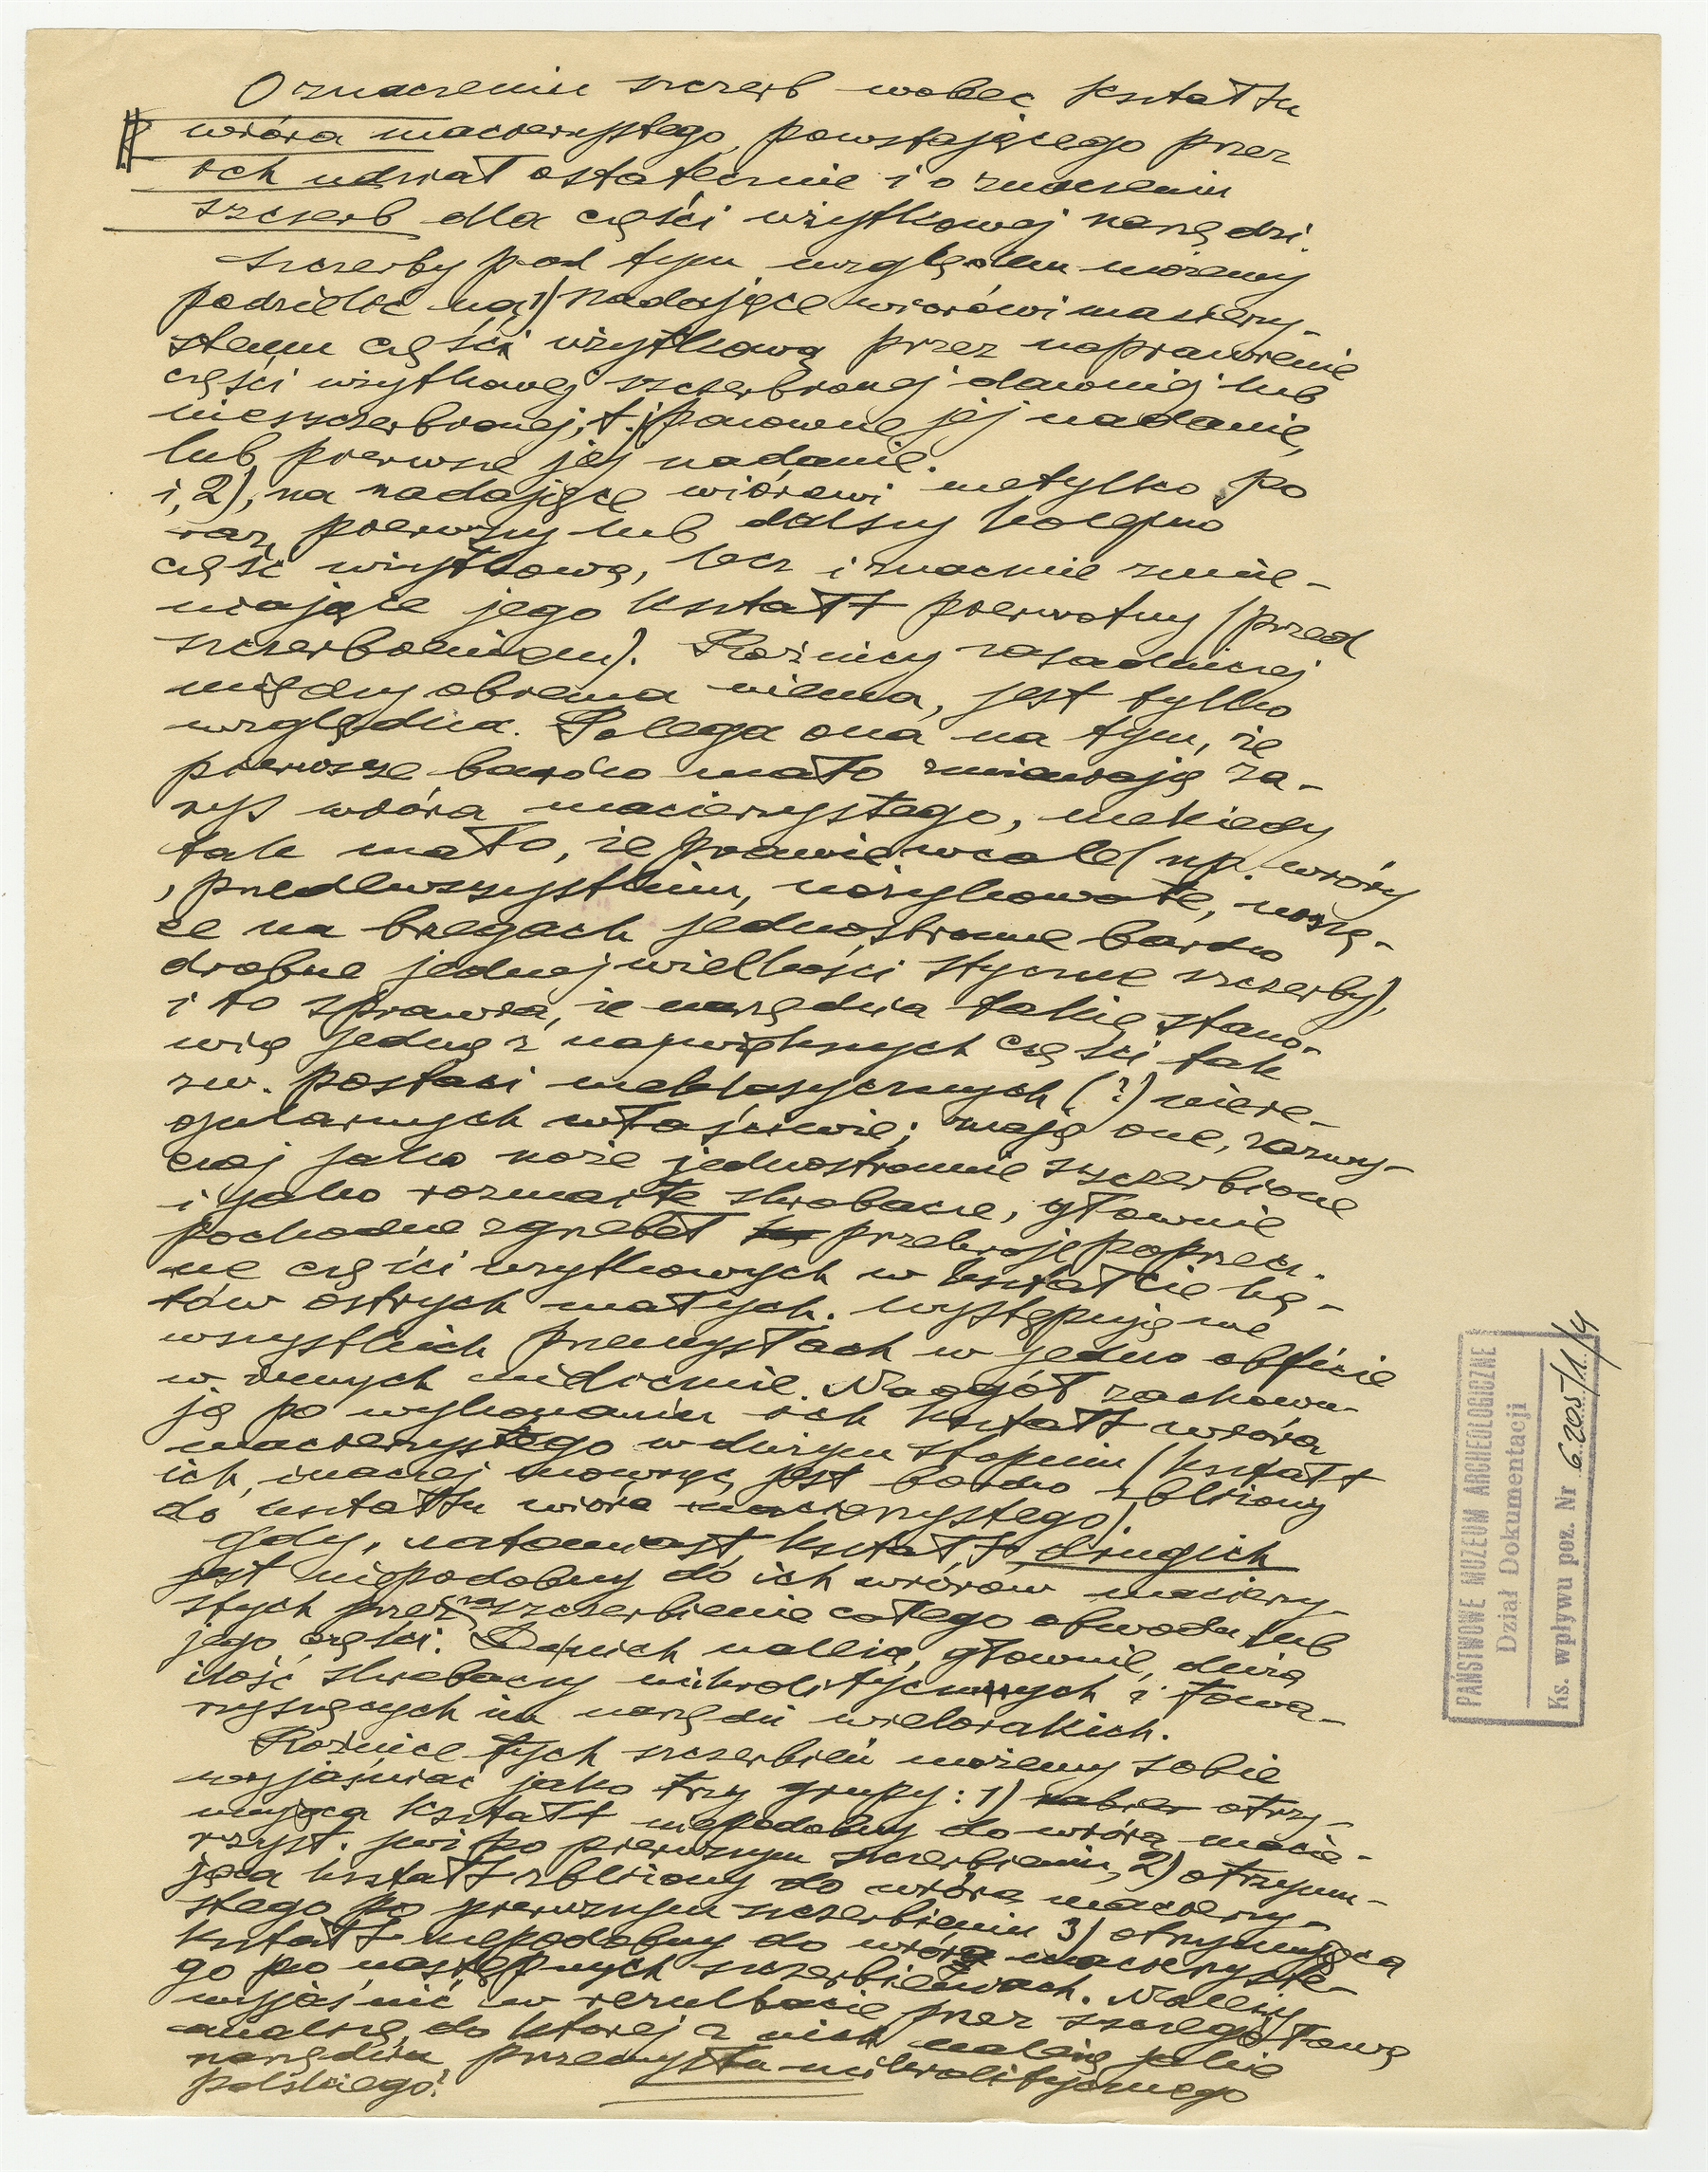 O znaczeniu szczerb wobec kształtu
wióra macierzystego, powstającego przez
ich udział ostatecznie i o znaczeniu
szczerb dla części użytkowej narzędzi.
Szczerby pod tym względem możemy
podzielić na 1) nadające wiórowi macierzy-
stemu części użytkową przez naprawienie
części użytkowej szczerbionej dawniej lub
nieszczerbionej, t.j. ponowne jej nadanie,
lub pierwsze jej nadanie.
i, 2), na nadające wiórowi nietylko po
raz pierwszy lub dalszy kolejno
część użytkową, lecz i znacznie zmie-
niające jego kształt pierwotny (przed
szczerbieniem). Różnicy zasadniczej
między obiema niema, jest tylko
względna. Polega ona na tym, że
pierwsze bardzo mało zmieniają za-
rys wióra macierzystego, niekiedy
tak mało, że prawie wcale (np. wióry
, przedewszystkim, nożykowate, noszą-
ce na brzegach jednostronne bardzo
drobne jednej wielkości styczne szczerby),
i to sprawia, że narzędzia takie stano-
wią jedną z największych części tak
zw. postaci nieklasycznych (?) niere-
gularnych właściwie; mają one, zazwy-
czaj jako noże jednostronnie szczerbione
i jako rozmaite skrobacze, głównie
pochodne zgrzebeł przekroje poprzecz-
ne części użytkowych w kształcie ką-
tów ostrych małych. Występują we
wszystkich przemysłach w jedno obficie
w innych nielicznie. Naogół zachowu-
ją po wykonaniu ich kształt wióra
macierzystego w dużym stopniu (kształt
ich, inaczej mówiąc, jest bardzo zbliżony
do kształtu wióra macierzystego).
Gdy, natomiast, kształt drugich
jest niepodobny do ich wiórów macierzy-
stych przez zaszczerbienie całego obwodu lub
jego części. Do nich należą, głównie, duża
ilość skrobaczy mikrolitycznych i towa-
rzyszących im narzędzi wielorakich.
Różnice tych szczerbień możemy sobie
wyjaśniać jako trzy grupy: 1) otrzy-
mująca kształt niepodobny do wióra macie-
rzyst. już po pierwszym szczerbieniu, 2) otrzymu-
jąca kształt zbliżony do wióra macierzy-
stego po pierwszym szczerbieniu 3) otrzymująca
kształt niepodobny do wióra macierzyste-
go po następnych szczerbieniach. Należy
wyjaśnić w rezultacie przez szczegółową
analizę, do której z nich należą jakie
narzędzia przemysłu mikrolitycznego
polskiego.
PAŃSTWOWE MUZEUM ARCHEOLOGICZNE
Dział Dokumentacji
Ks. wpływu poz. Nr 6205/11/4